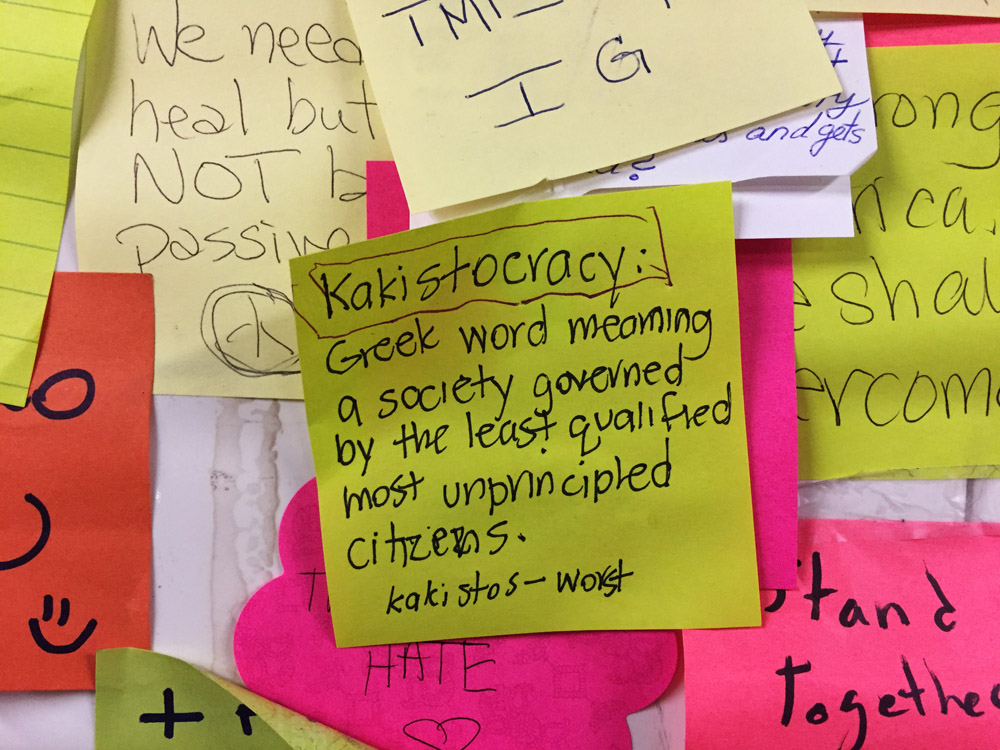 We need
heal but
NOT b
passive
TMI
I G
and gets
Kakistocracy:
Greek word meaning
a society governed
by the least qualified
most unprincipled
citizens.
kakistos - worst
rong
rica.
e shal
ercome
HATE
Stand
Together